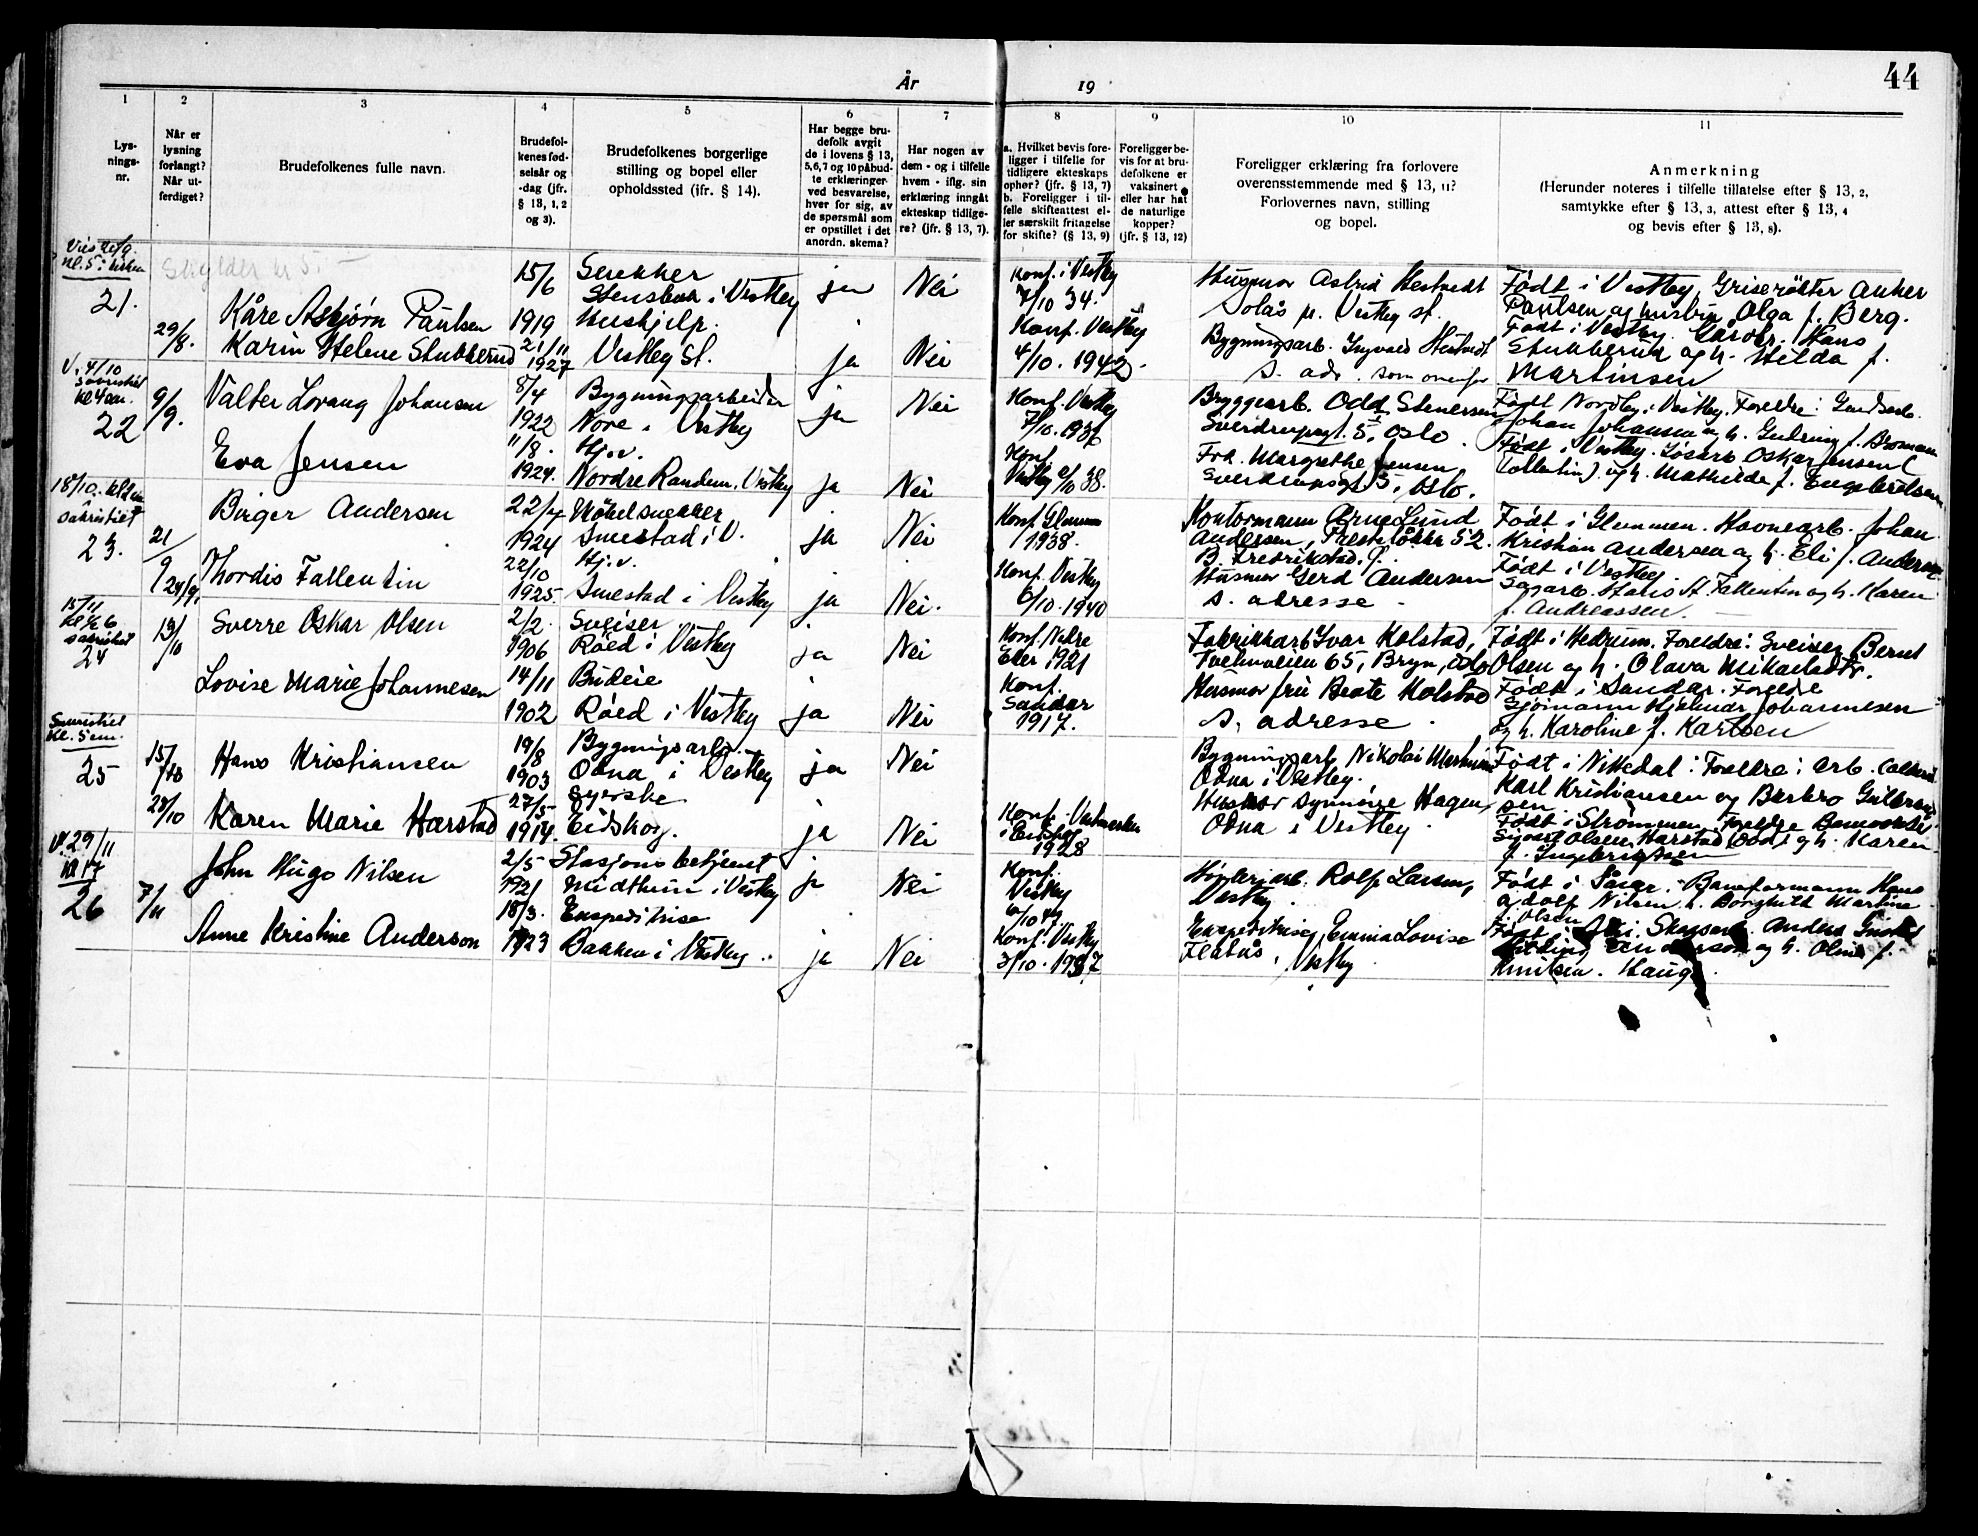 44
År 19
1 2 3 4 5 6 7 8 9 10 11
Lys-
nings-
nr.
Når er
lysning
forlangt?
Når ut-
ferdiget?
Brudefolkenes fulle navn.
Brudefol-
kenes fød-
selsår og
-dag (jfr.
§ 13, 1, 2
og 3).
Brudefolkenes borgerlige
stilling og bopel eller
opholdssted (ifr. § 14).
Har begge bru-
defolk avgitt
de i lovens § 13,
5,6,7 og 10 påbud-
te erklæringer
ved besvarelse,
hver for sig, av
de spørsmål som
er opstillet i det
anordn. skema?
Har nogen av
dem - og i tilfelle
hvem - iflg. sin
erklæring inngåt
ekteskap tidlige-
re? (jfr. § 13, 7).
a. Hvilket bevis fore-
ligger i tilfelle for
tidligere ekteskaps
ophør? (jfr. § 13, 7)
b. Foreligger i til-
felle skifteattest el-
ler særskilt fritagelse
for skifte? (§ 13, 9)
Foreligger be-
vis for at bru-
defolkene er
vaksinert
eller har hat
de naturlige
kopper?
(jfr. § 13, 12)
Foreligger erklæring fra forlovere
overensstemmende med § 13, 11?
Forlovernes navn, stilling
og bopel.
Anmerkning
(Herunder noteres i tilfelle tillatelse efter § 13, 2,
samtykke efter § 13, 3, attest efter § 13, 4
og bevis efter § 13, 8).
kl. 5 i kirken
21.
29/8.
Kåre Asbjørn Paulsen
15/6
1919
Snekker
i Vestby
ja
Nei
Konf. i Vestby
7/10 34.
Husmor Astrid Hestvedt
Solås pr. Vestby st.
Født i Vestby. Griserøkter Anker
Paulsen og hustru Olga f. Berg.
Karin Helene Stubberud
21/11
1927
Hushjelp.
Vestby St.
ja
Nei
Konf. Vestby
4/10. 1942.
Bygningsarb. Ingvald Hestvedt
s. adr. som ovenfor
Født i Vestby. Hans
Stubberud og h. Hilda f.
Martinsen
V. 4/10
sakristiet
22
9/9.
Valter Lorang Johansen
8/4
1922
Bygningsarbeider
Nore i Vestby
ja
Nei
Konf. Vestby
7/10. 1936
Bryggearb. Odd Stenersen
5, Oslo.
Født Nordby i Vestby. Foreldre: Gårdsarb.
Johan Johansen og h. Gudrun f. Bosmann
Eva Jensen
11/8.
1924.
Hj.v.
Nordre Randem. Vestby
ja
Nei
Konf.
Vestby 2/10 38.
Frk. Margrethe Jensen
5, Oslo.
Født i Vestby. Løsarb. Oskar Jensen
og h. Mathilde f. Engebretsen
18/10.
i
sakristiet
23.
21/9
24/9.
Birger Andersen
22/4
1924
Møbelsnekker
Smestad i V.
ja
Nei
Konf. Glemmen
1938.
Kontormann Arne Lund
Andersen, 52.
B. Fredrikstad.
Født i Glemmen. Havnearb. Johan
Kristian Andersen og h. Eli f. Andersen
Thordis Fallentin
22/10
1925.
Hj.v.
Smestad i Vestby
ja
Nei.
Konf. Vestby
6/10. 1940
Husmor Gerd Andersen
s. adresse
Født i Vestby
Sagarb. Hans Fallentin og h. Karen
f. Andreassen
15/11
kl ½ 6
sakristiet
24
13/10
Sverre Oskar Olsen
2/2.
1906
Sveiser
Røed i Vestby
ja
Nei
Konf. Nedre
Eker 1921
Fabrikkarb. Ivar Kolstad,
Tvetenveien 65, Bryn, Oslo
Født i Hedrum. Foreldre: Sveiser Bernt
Olsen og h. Olava Mikaelsdtr.
Lovise Marie Johannesen
14/11
1902
Budeie
Røed i Vestby
ja
Nei
Konf.
Sandar
1917.
Husmor fru Beate Kolstad
s. adresse
Født i Sandar. Foreldre
Sjømann Hjelmar Johannesen
og h. Karoline f. Karlsen
Sakristiet
kl. 5 em.
25
15/10
Hans Kristiansen
19/8
1903
Bygningsarb.
Odna i Vestby
ja
Nei
Bygningsarb. Nikolai
Odna i Vestby.
Født i Nittedal: Foreldre: Arb.
Karl Kristiansen og Berbro Gulbrand
sen
28/10
Karen Marie Harstad
27/5
1914.
Syerske
Eidskog.
ja
Nei
Konf. Vestmarken
i Eidskog
1928
Husmor Synnøve Hagen,
Odna i Vestby.
Født i Strømmen. Foreldre Banevokter
Sigvart Olsen Harstad (død) og h. Karen
f. Ingebrigtsen
V. 29/11
kl 17
26
7/11
John Hugo Nilsen
2/5
1921
Stasjonsbetjent
Midthun i Vestby
ja
Nei
Konf.
Vestby
Rolf Larsen,
Vestby.
Født i Såner. Baneformann Hans
Adolf Nilsen h. Borghild Martine
f. Olsen
Anne Kristine Anderson
18/3.
1923
Ekspeditrise
Bakken i Vestby.
ja
Nei
Konf. Vestby
3/10. 1937
Ekspeditrise, Emma Lovise
Flatås, Vestby
Født i Skogsarb. Anders
og h. f.
Knutsen. Hauge.